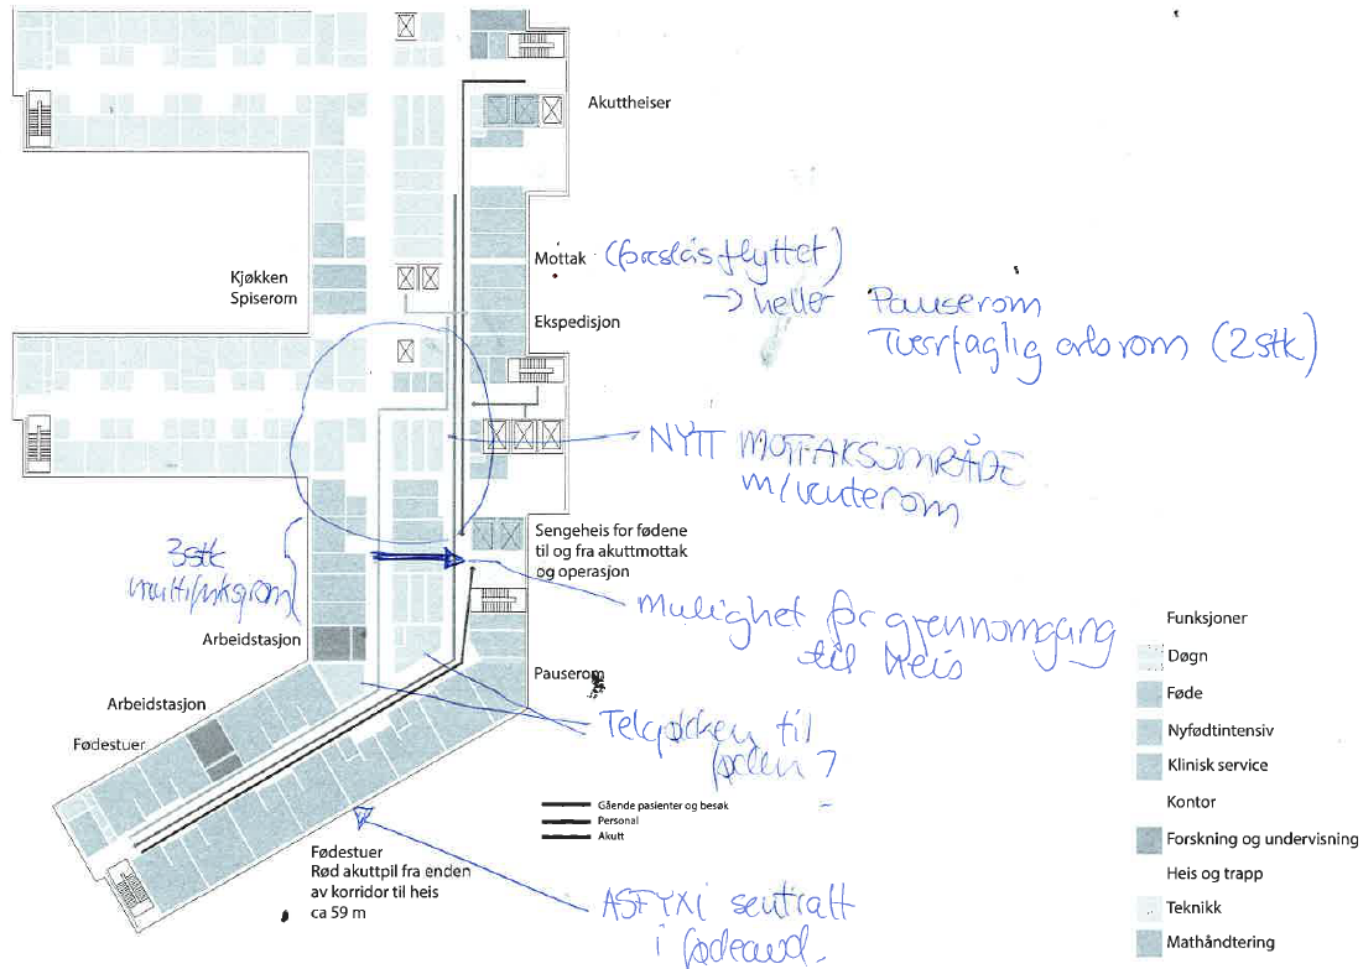 Akuttheiser
Mottak (foreslås flyttet)
→ heller Pauserom
Tverrfaglig arb rom (2stk)
Kjøkken
Spiserom
Ekspedisjon
NYTT MOTTAKSOMRÅDE
m/venterom
Sengeheis for fødene
til og fra akuttmottak
og operasjon
3stk
Mulighet for gjennomgang
til heis
Arbeidstasjon
Pauserom
Arbeidstasjon
Fødestuer
til
føden?
Gående pasienter og besøk
Personal
Akutt
Fødestuer
Rød akuttpil fra enden
av korridor til heis
ca 59 m
ASFYXI sentralt
i fødeavd.
Funksjoner
Døgn
Føde
Nyfødtintensiv
Klinisk service
Kontor
Forskning og undervisning
Heis og trapp
Teknikk
Mathåndtering